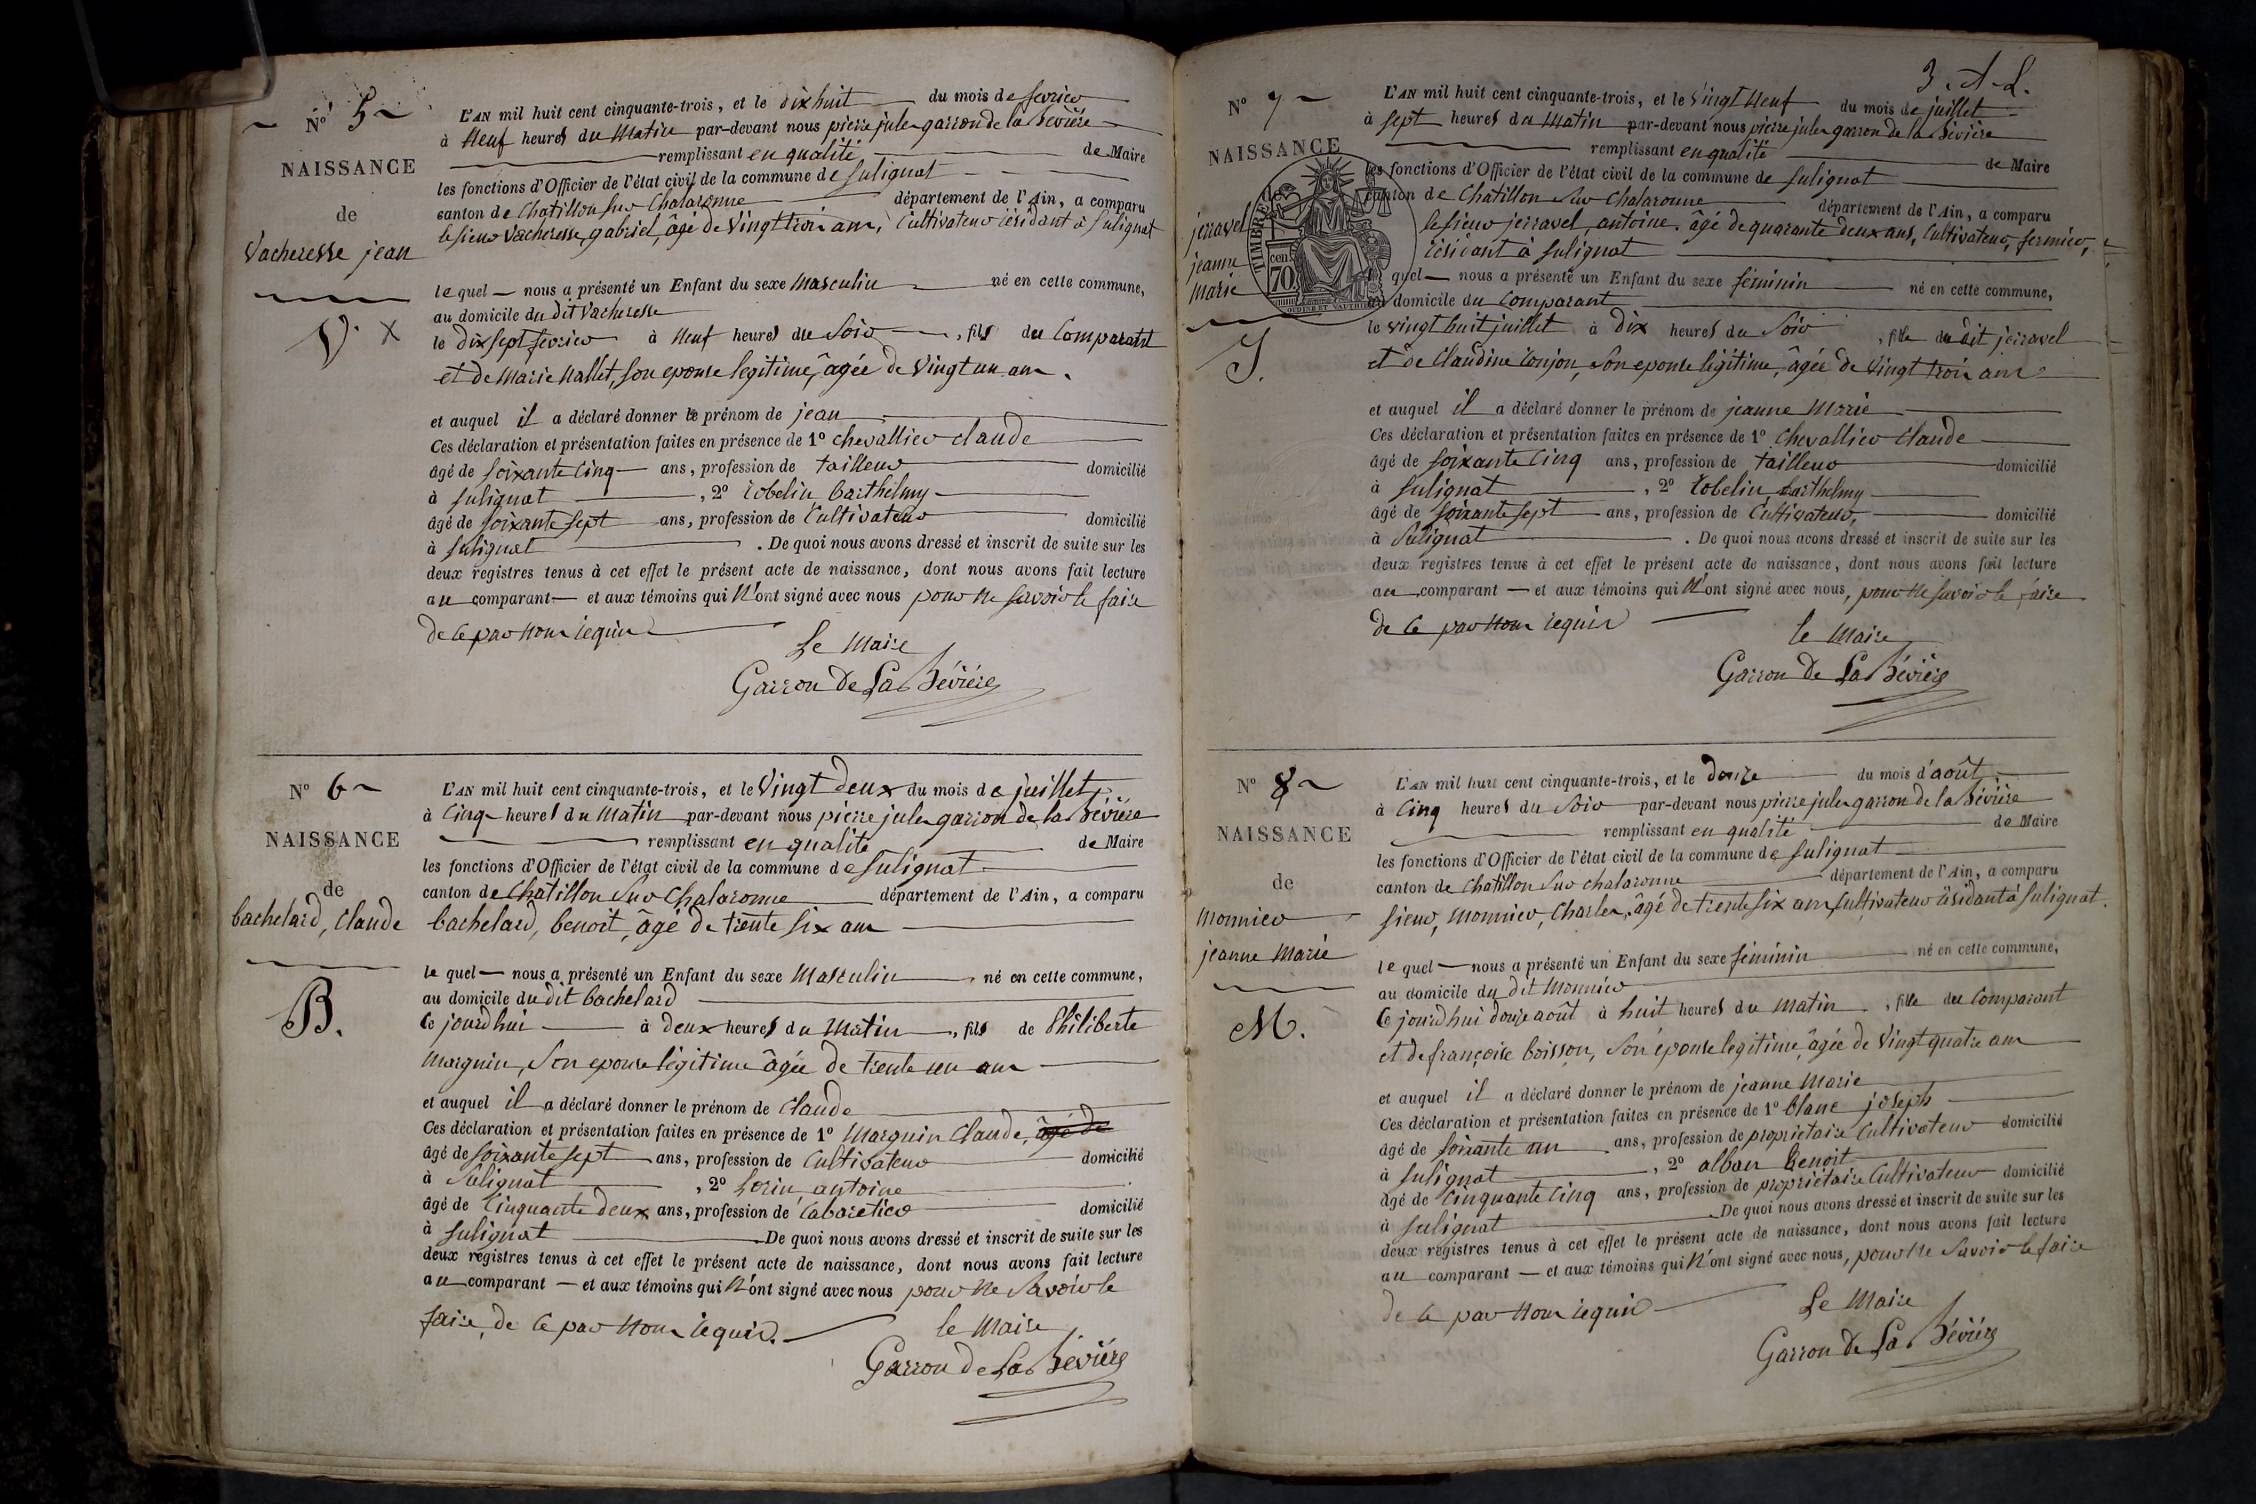 N° 5
NAISSANCE
de
Vacheresse jean
V. X
L'AN mil huit cent cinquante-trois, et le dix huit du mois de fevrier
à Neuf heures du Matin par-devant nous pierre jules garron de la Bévière
remplissant en qualité de Maire
les fonctions d'Officier de l'état civil de la commune de Sulignat
canton de Chatillon sur Chalaronne département de l'Ain, a comparu
le sieur Vacheresse, gabriel, âgé de Vingt trois ans, Cultivateur résidant à Sulignat
le quel nous a présenté un Enfant du sexe Masculin né en cette commune,
au domicile du dit Vacheresse
le dix sept fevrier à Neuf heures du Soir, fils du Comparant
et de Marie Nallet, son epouse legitime, âgée de Vingt un ans.
et auquel il a déclaré donner le prénom de jean
Ces déclaration et présentation faites en présence de 1° Chevallier Claude
âgé de soixante Cinq ans, profession de tailleur domicilié
à Sulignat, 2° Robelin Barthelmy
âgé de soixante sept ans, profession de Cultivateur domicilié
à Sulignat. De quoi nous avons dressé et inscrit de suite sur les
deux registres tenus à cet effet le présent acte de naissance, dont nous avons fait lecture
au comparant et aux témoins qui N'ont signé avec nous pour Ne savoir le faire
de ce par Nous requis
Le Maire
Garron De La Bévière
N° 6
NAISSANCE
de
bachelard, Claude
B.
L'AN mil huit cent cinquante-trois, et le Vingt deux du mois de juillet
à Cinq heures du Matin par-devant nous pierre jules garron de la Bévière
remplissant en qualité de Maire
les fonctions d'Officier de l'état civil de la commune de Sulignat
canton de Chatillon Sur Chalaronne département de l'Ain, a comparu
bachelard, benoit, âgé de trente six ans
le quel nous a présenté un Enfant du sexe Masculin né en cette commune,
au domicile du dit bachelard
Ce jourd'hui à deux heures du Matin, fils de Philiberte
Marguin, Son epouse légitime âgée de trente un ans
et auquel il a déclaré donner le prénom de Claude
Ces déclaration et présentation faites en présence de 1° Marguin Claude, âgé de
âgé de soixante sept ans, profession de Cultivateur domicilié
à Sulignat, 2° Lorin antoine
âgé de Cinquante deux ans, profession de Cabaretier domicilié
à Sulignat De quoi nous avons dressé et inscrit de suite sur les
deux registres tenus à cet effet le présent acte de naissance, dont nous avons fait lecture
au comparant et aux témoins qui N'ont signé avec nous pour Ne Savoir le
faire, de Ce par Nous requis.
le Maire
Garron De La Bévière
3. A. L.
N° 7
NAISSANCE
de
jerravel
jeanne
Marie
J.
TIMBRE
70 cen
L'AN mil huit cent cinquante-trois, et le Vingt Neuf du mois de juillet
à Sept heures du Matin par-devant nous pierre jules garron de la Bévière
remplissant en qualité de Maire
les fonctions d'Officier de l'état civil de la commune de Sulignat
canton de Chatillon Sur Chalaronne département de l'Ain, a comparu
le sieur jerravel, antoine. âgé de quarante deux ans, Cultivateur, fermier,
résidant à Sulignat
quel nous a présenté un Enfant du sexe féminin né en cette commune,
au domicile du Comparant
le vingt huit juillet à Dix heures du Soir, fille du dit jerravel
et de Claudine Conjon, Son epouse légitime, âgée de Vingt trois ans
et auquel il a déclaré donner le prénom de jeanne Marie
Ces déclaration et présentation faites en présence de 1° Chevallier Claude
âgé de Soixante Cinq ans, profession de tailleur domicilié
à Sulignat, 2° Robelin Barthelmy
âgé de Soixante sept ans, profession de Cultivateur, domicilié
à Sulignat. De quoi nous avons dressé et inscrit de suite sur les
deux registres tenus à cet effet le présent acte de naissance, dont nous avons fait lecture
au comparant et aux témoins qui N'ont signé avec nous, pour Ne Savoir le faire
de Ce par Nous requis
le Maire
Garron De La Bévière
N° 8
NAISSANCE
de
Monnier
jeanne Marie
M.
L'AN mil huit cent cinquante-trois, et le douze du mois d'août
à Cinq heures du Soir par-devant nous pierre jules garron de la Bévière
remplissant en qualité de Maire
les fonctions d'Officier de l'état civil de la commune de Sulignat
canton de Chatillon Sur Chalaronne département de l'Ain, a comparu
sieur, Monnier, Charles, âgé de trente six ans, Cultivateur résidant à Sulignat.
le quel nous a présenté un Enfant du sexe féminin né en cette commune,
au domicile du dit Monnier
Ce jourd'hui douze août à huit heures du Matin, fille du Comparant
et de françoise boisson, Son épouse legitime, âgée de Vingt quatre ans
et auquel il a déclaré donner le prénom de jeanne Marie
Ces déclaration et présentation faites en présence de 1° blanc joseph
âgé de Soixante un ans, profession de propriétaire Cultivateur domicilié
à Sulignat, 2° alban Benoit
âgé de Cinquante Cinq ans, profession de propriétaire Cultivateur domicilié
à Sulignat De quoi nous avons dressé et inscrit de suite sur les
deux registres tenus à cet effet le présent acte de naissance, dont nous avons fait lecture
au comparant et aux témoins qui N'ont signé avec nous, pour Ne Savoir le faire
de Ce par Nous requis
Le Maire
Garron De La Bévière